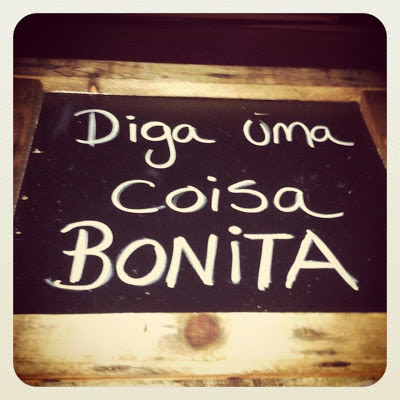 Diga uma
coisa
BONiTA